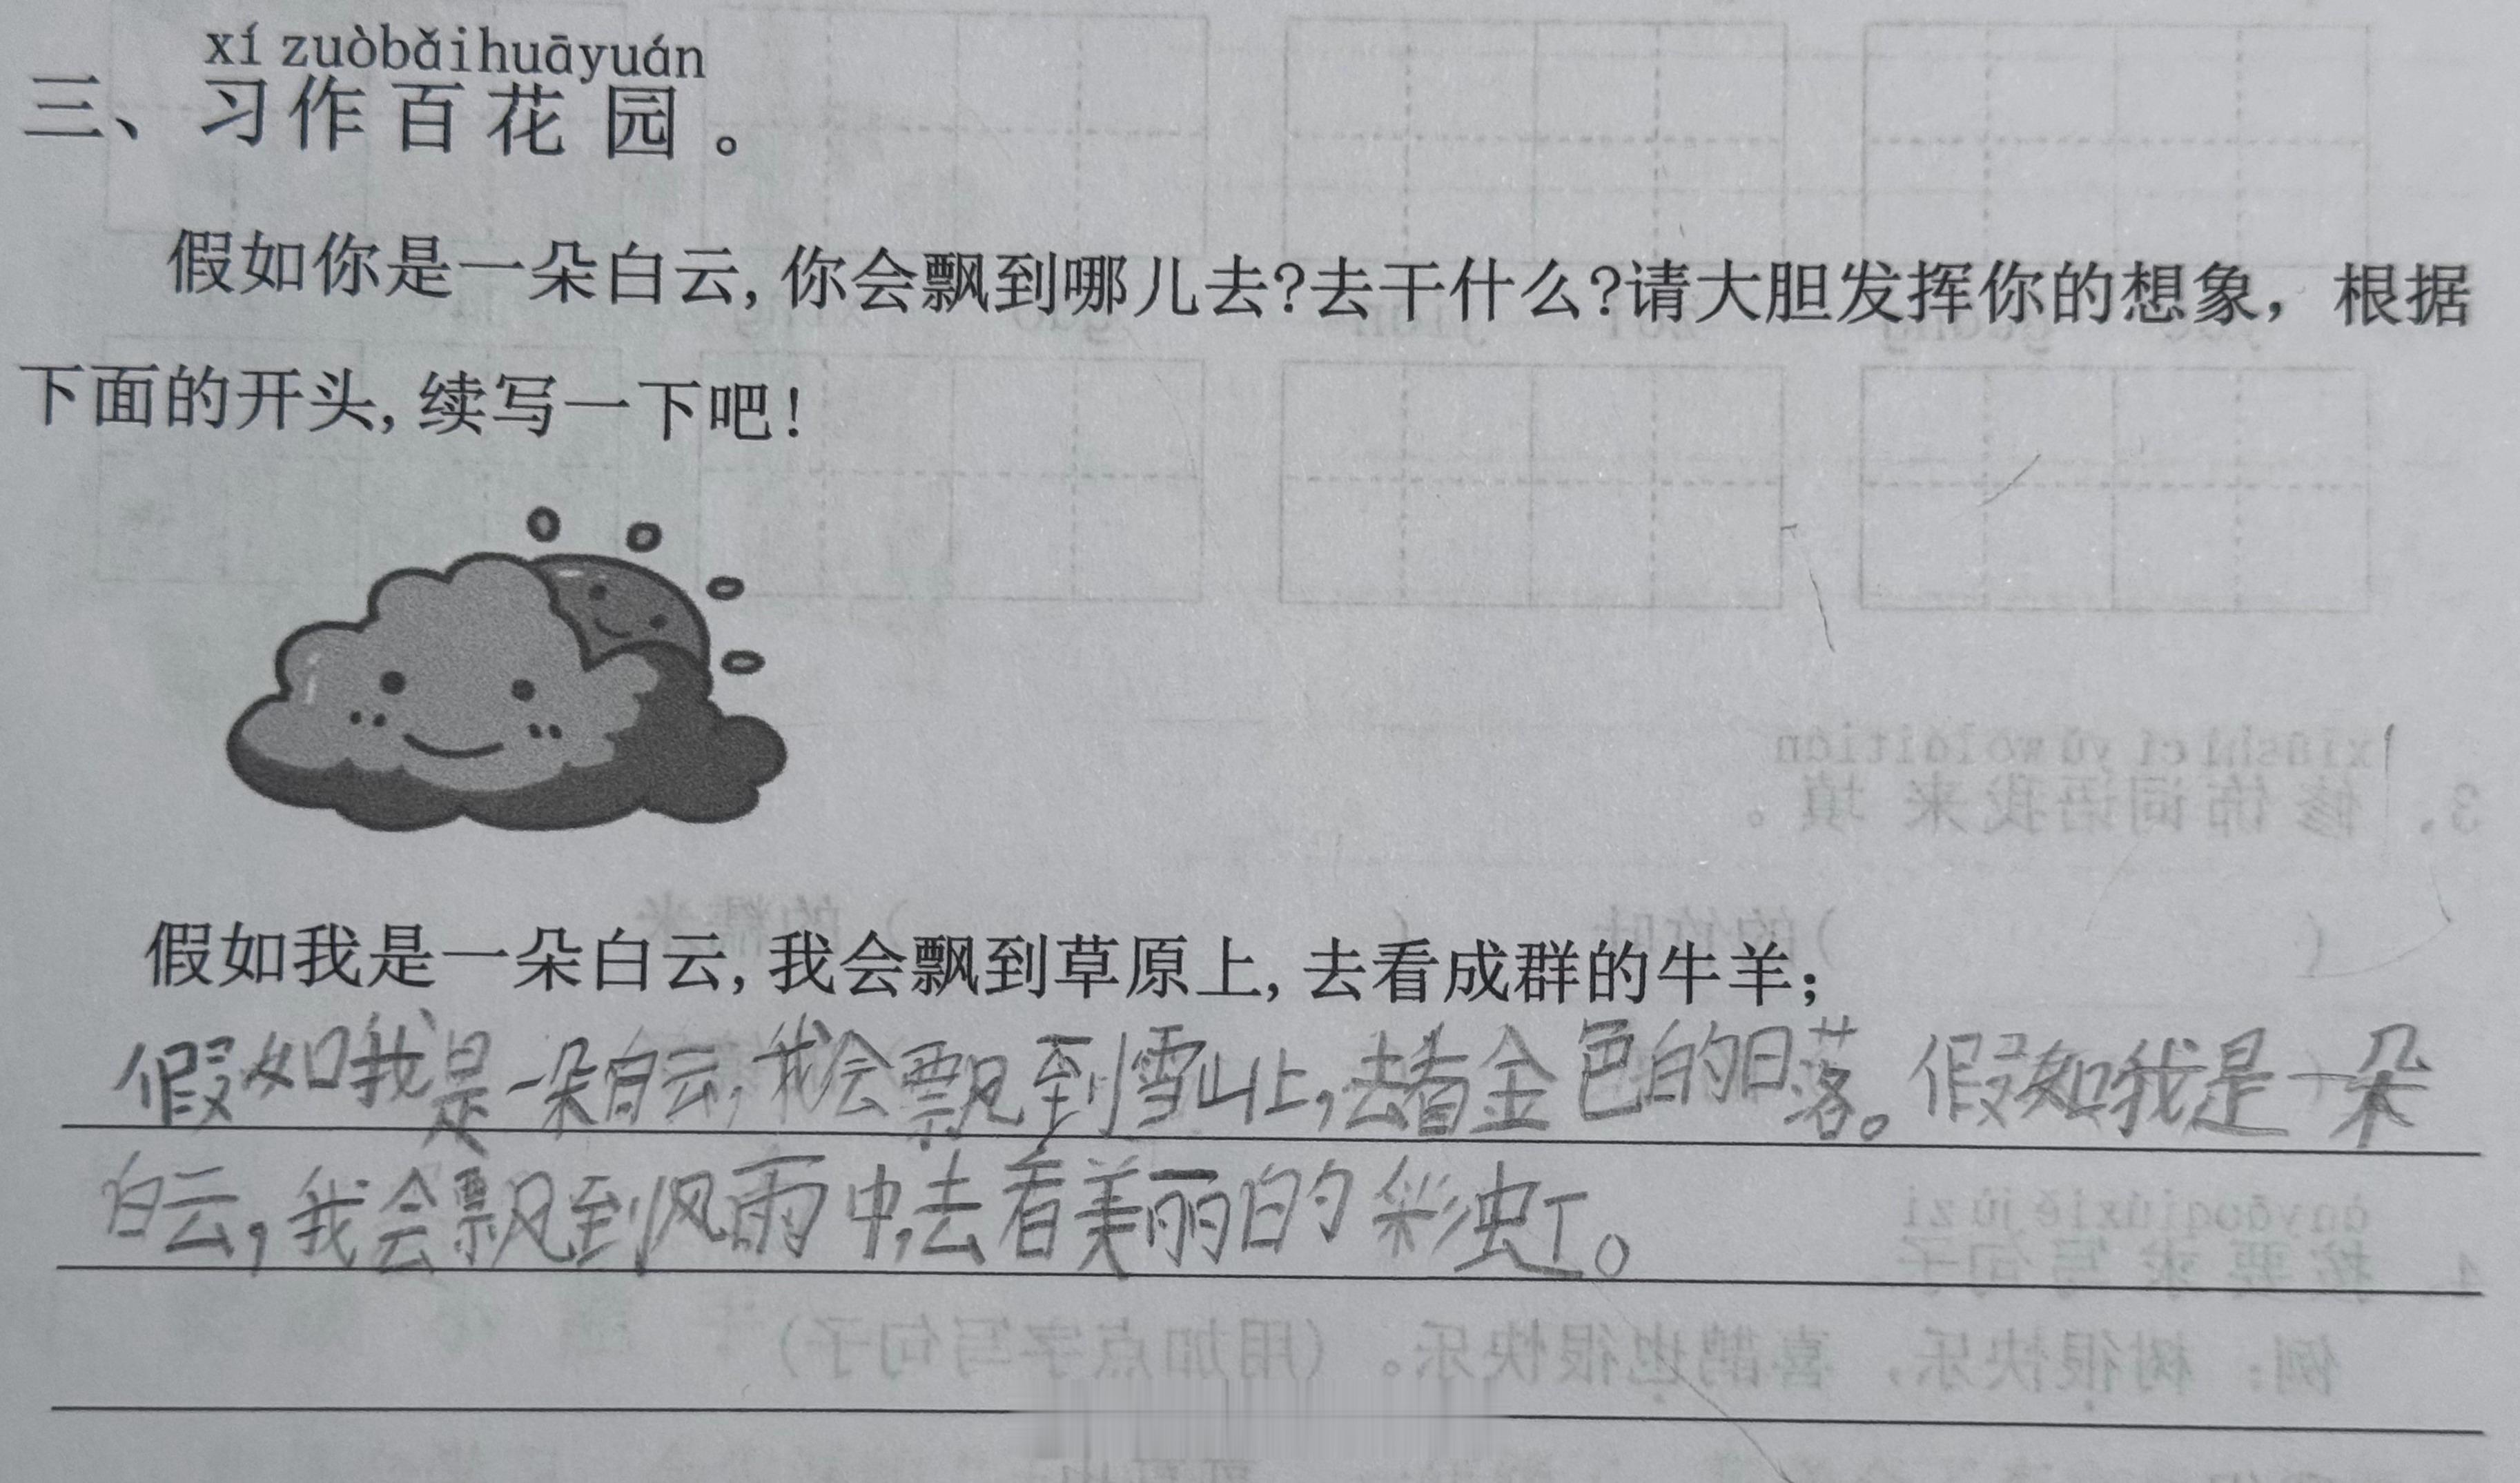 xí zuò bǎi huā yuán
三、习作百花园。
假如你是一朵白云,你会飘到哪儿去?去干什么?请大胆发挥你的想象，根据
下面的开头,续写一下吧!
假如我是一朵白云,我会飘到草原上,去看成群的牛羊;
假如我是一朵白云,我会飘到雪山上,去看金色的日落。假如我是一朵
白云,我会飘到风雨中,去看美丽的彩虹。